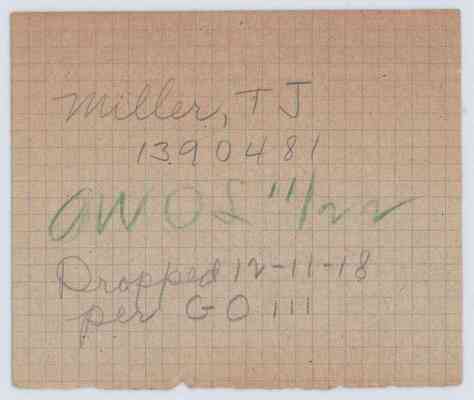 Miller, T J
1390481
OWOS 11/22
Dropped 12-11-18
per GO 111